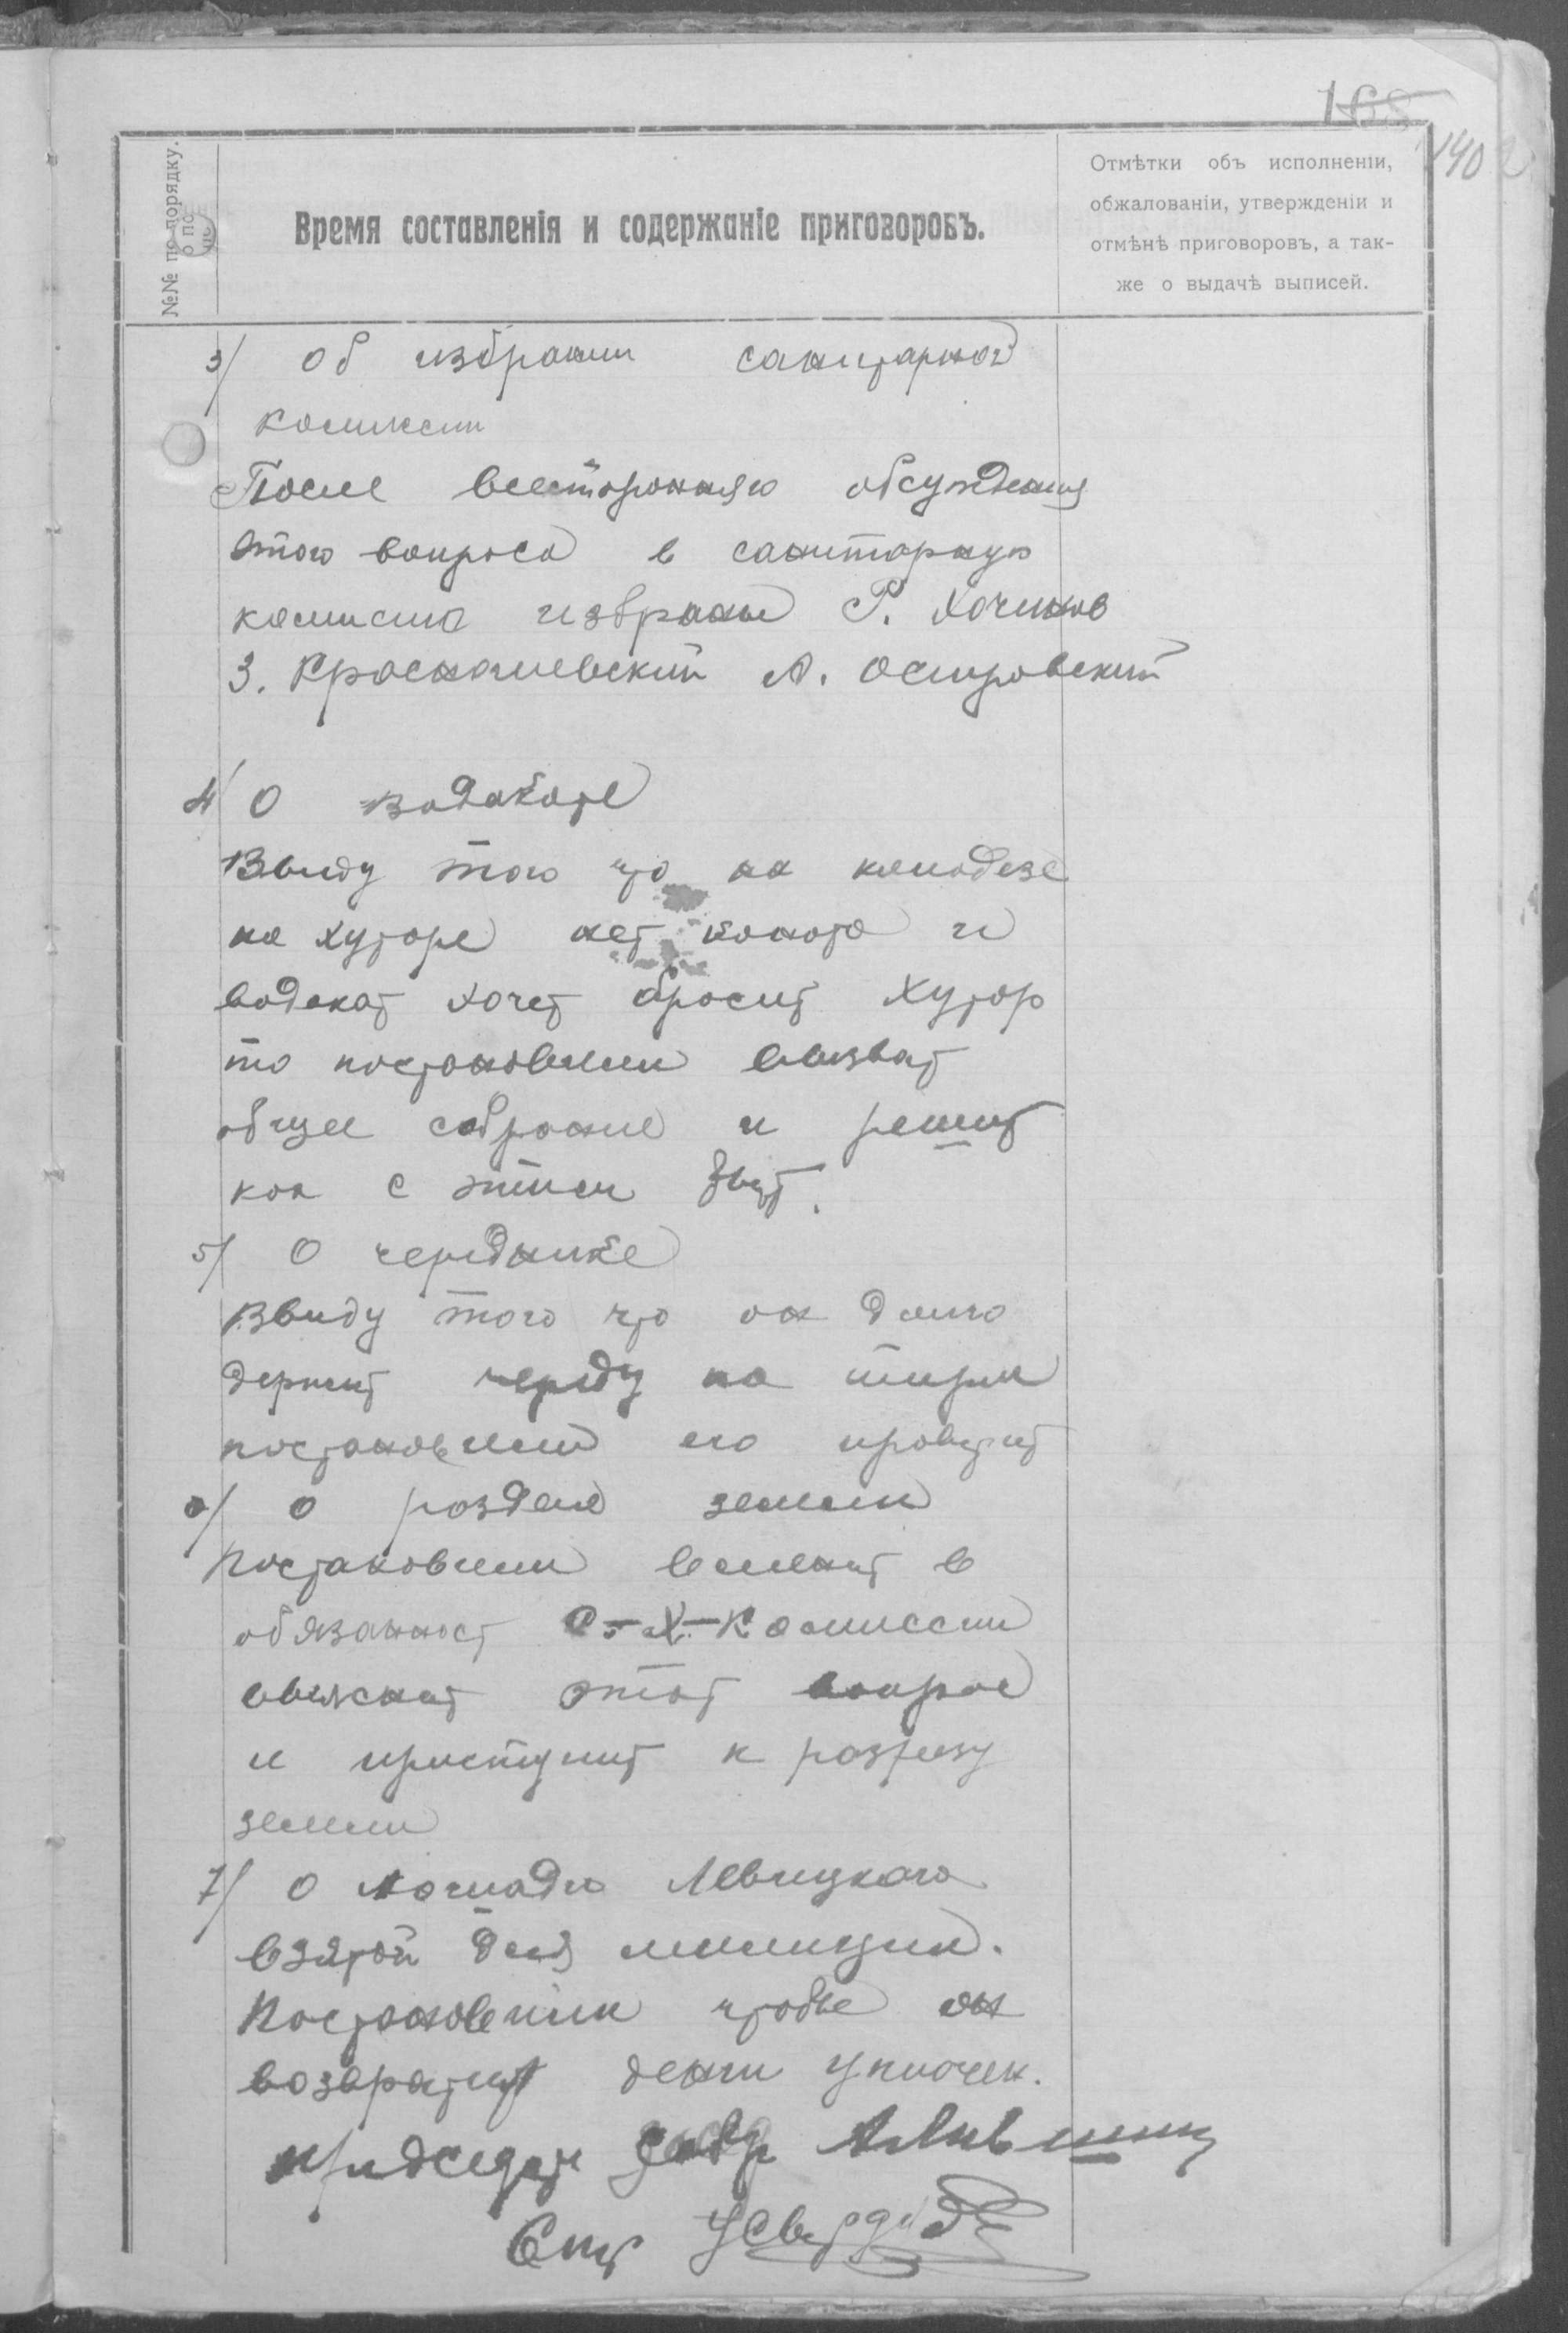 168
140
№№ по порядку.
Время составленія и содержаніе приговоровъ.
Отмѣтки объ исполненіи,
обжалованіи, утвержденіи и
отмѣнѣ приговоровъ, а так-
же о выдачѣ выписей.
3/ Об избрании санитарной
комиссии
После всесторонняго обсуждения
этого вопроса в санитарную
комиссию избраны Р. Хочинов
З. Красножиевский А. Островский
4/ О водакате
Ввиду того что на колодезе
на хуторе нет каната и
водакат хочет бросит хутор
то постановили вызват
общее собрание и решит
как с этим быт.
5/ О череднике
Ввиду того что он долго
держит череду на тирле
постановили его проверит
6/ О разделе земли
Постановили вменит в
обязанност С.-Х. Комиссии
выяснит этот вопрос
и приступит к разрезу
земли
7/ О лошади Левицкого
взятой для милиции.
Постановили чтобы он
возвратил денги
председате Собр А Лившиц
Секр